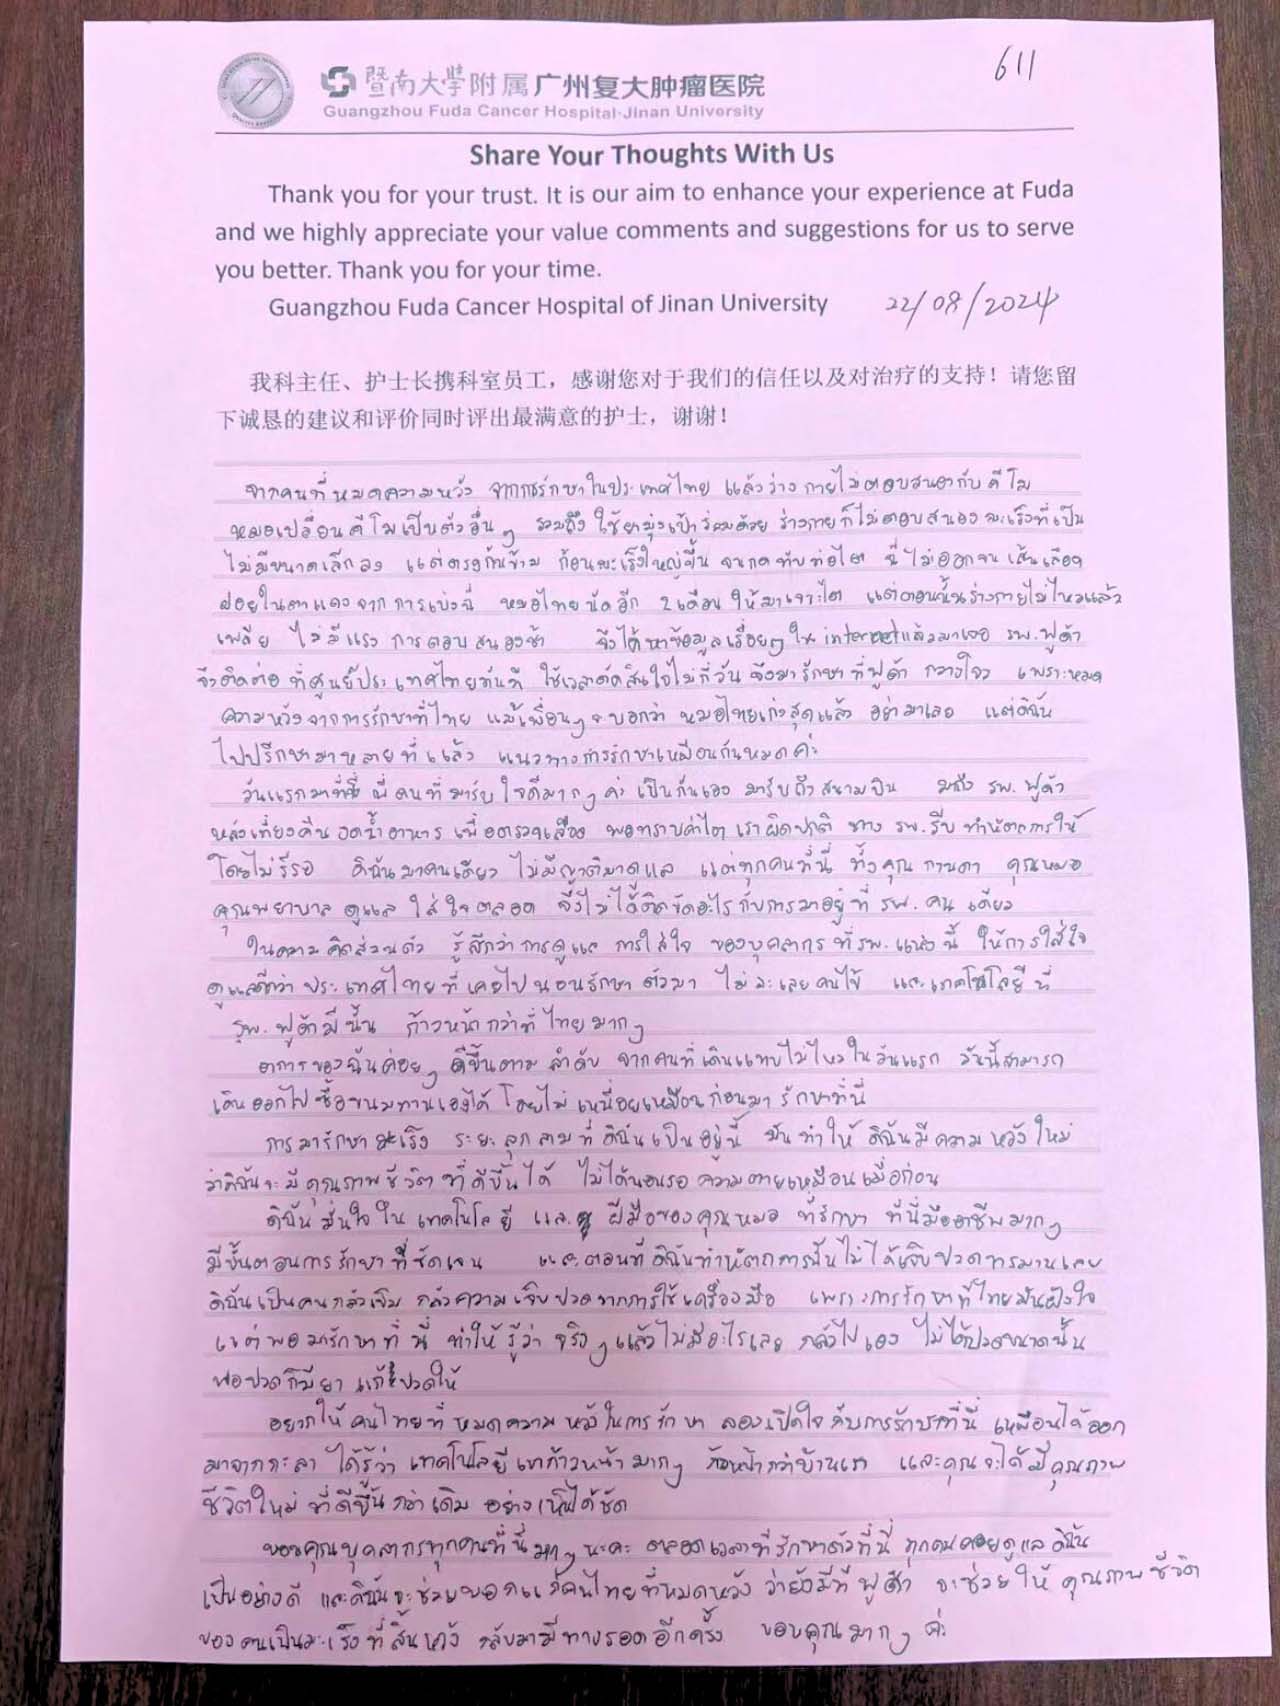 611
暨南大學附属广州复大肿瘤医院
Guangzhou Fuda Cancer Hospital·Jinan University
Share Your Thoughts With Us
Thank you for your trust. It is our aim to enhance your experience at Fuda
and we highly appreciate your value comments and suggestions for us to serve
you better. Thank you for your time.
Guangzhou Fuda Cancer Hospital of Jinan University 22/08/2024
我科主任、护士长携科室员工，感谢您对于我们的信任以及对治疗的支持！请您留
下诚恳的建议和评价同时评出最满意的护士，谢谢！
จากคนที่หมดความหวัง จากการรักษาในประเทศไทย แล้วร่างกายไม่ตอบสนองกับคีโม
หมอเปลี่ยนคีโมเป็นตัวอื่นๆ รวมถึง ใช้ยามุ่งเป้าร่วมด้วย ร่างกายก็ไม่ตอบสนอง มะเร็งที่เป็น
ไม่มีขนาดเล็กลง แต่ตรงกันข้าม ก้อนมะเร็งใหญ่ขึ้น จนกดทับท่อไต ฉี่ไม่ออกจนเส้นเลือด
ฝอยในตาแดงจากการเบ่งฉี่ หมอไทยนัดอีก 2 เดือน ให้มาเจาะไต แต่ตอนนั้นร่างกายไม่ไหวแล้ว
เพลีย ไม่มีแรง การตอบสนองช้า จึงได้หาข้อมูลเรื่อยๆ ใน internet แล้วมาเจอ รพ.ฟูด้า
จึงติดต่อ ที่ศูนย์ประเทศไทยทันที ใช้เวลาตัดสินใจไม่กี่วัน จึงมารักษาที่ฟูด้า กวางโจว เพราะหมด
ความหวังจากการรักษาที่ไทย แม้เพื่อนๆ จะบอกว่า หมอไทยเก่งสุดแล้ว อย่ามาเลย แต่ดิฉัน
ไปปรึกษามาหลายที่แล้ว แนวทางการรักษาเหมือนกันหมดค่ะ
วันแรกมาที่นี่ พี่คนที่มารับ ใจดีมากๆ ค่ะ เป็นกันเอง มารับถึงสนามบิน มาถึง รพ.ฟูด้า
หลังเที่ยงคืน งดน้ำอาหาร เพื่อตรวจเลือด พอทราบค่าไตเราผิดปกติ ทาง รพ.รีบทำหัตถการให้
โดยไม่รีรอ ดิฉันมาคนเดียว ไม่มีญาติมาดูแล แต่ทุกคนที่นี่ ทั้งคุณกานดา คุณหมอ
คุณพยาบาล ดูแล ใส่ใจตลอด จึงไม่ได้ติดขัดอะไรกับการมาอยู่ที่ รพ. คนเดียว
ในความคิดส่วนตัว รู้สึกว่าการดูแล การใส่ใจ ของบุคลากรที่รพ.แห่งนี้ ให้การใส่ใจ
ดูแลดีกว่า ประเทศไทยที่เคยไปนอนรักษาตัวมา ไม่ละเลยคนไข้ และเทคโนโลยีที่
รพ.ฟูด้ามีนั้น ก้าวหน้ากว่าที่ไทยมากๆ
อาการของฉันค่อยๆ ดีขึ้นตามลำดับ จากคนที่เดินแทบไม่ไหวในวันแรก วันนี้สามารถ
เดินออกไปซื้อขนมทานเองได้ โดยไม่เหนื่อยเหมือนก่อนมารักษาที่นี่
การมารักษามะเร็ง ระยะลุกลามที่ดิฉันเป็นอยู่นี้ มันทำให้ดิฉันมีความหวังใหม่
ว่าดิฉันจะมีคุณภาพชีวิตที่ดีขึ้นได้ ไม่ได้นอนรอความตายเหมือนเมื่อก่อน
ดิฉันมั่นใจในเทคโนโลยี และ ฝีมือของคุณหมอ ที่รักษา ที่นี่มืออาชีพมากๆ
มีขั้นตอนการรักษาที่ชัดเจน และตอนที่ดิฉันทำหัตถการนั้นไม่ได้เจ็บปวดทรมานเลย
ดิฉันเป็นคนกลัวเข็ม กลัวความเจ็บปวดจากการใช้เครื่องมือ เพราะการรักษาที่ไทยมันฝังใจ
แต่พอมารักษาที่นี่ ทำให้รู้ว่า จริงๆ แล้วไม่มีอะไรเลย กลัวไปเอง ไม่ได้ปวดขนาดนั้น
พอปวดก็มียาแก้ปวดให้
อยากให้คนไทยที่หมดความหวังในการรักษา ลองเปิดใจกับการรักษาที่นี่ เหมือนได้ออก
มาจากกะลา ได้รู้ว่า เทคโนโลยีเขาก้าวหน้ามากๆ ก้าวหน้ากว่าบ้านเรา และคุณจะได้มีคุณภาพ
ชีวิตใหม่ ที่ดีขึ้นกว่าเดิม อย่างเห็นได้ชัด
ขอบคุณบุคลากรทุกคนที่นี่มากๆ นะคะ ตลอดเวลาที่รักษาตัวที่นี่ ทุกคนคอยดูแลดิฉัน
เป็นอย่างดี และดิฉันจะช่วยบอกแก่คนไทยที่หมดหวัง ว่ายังมีที่ฟูด้า จะช่วยให้คุณภาพชีวิต
ของคนเป็นมะเร็งที่สิ้นหวัง กลับมามีทางรอดอีกครั้ง ขอบคุณมากๆ ค่ะ